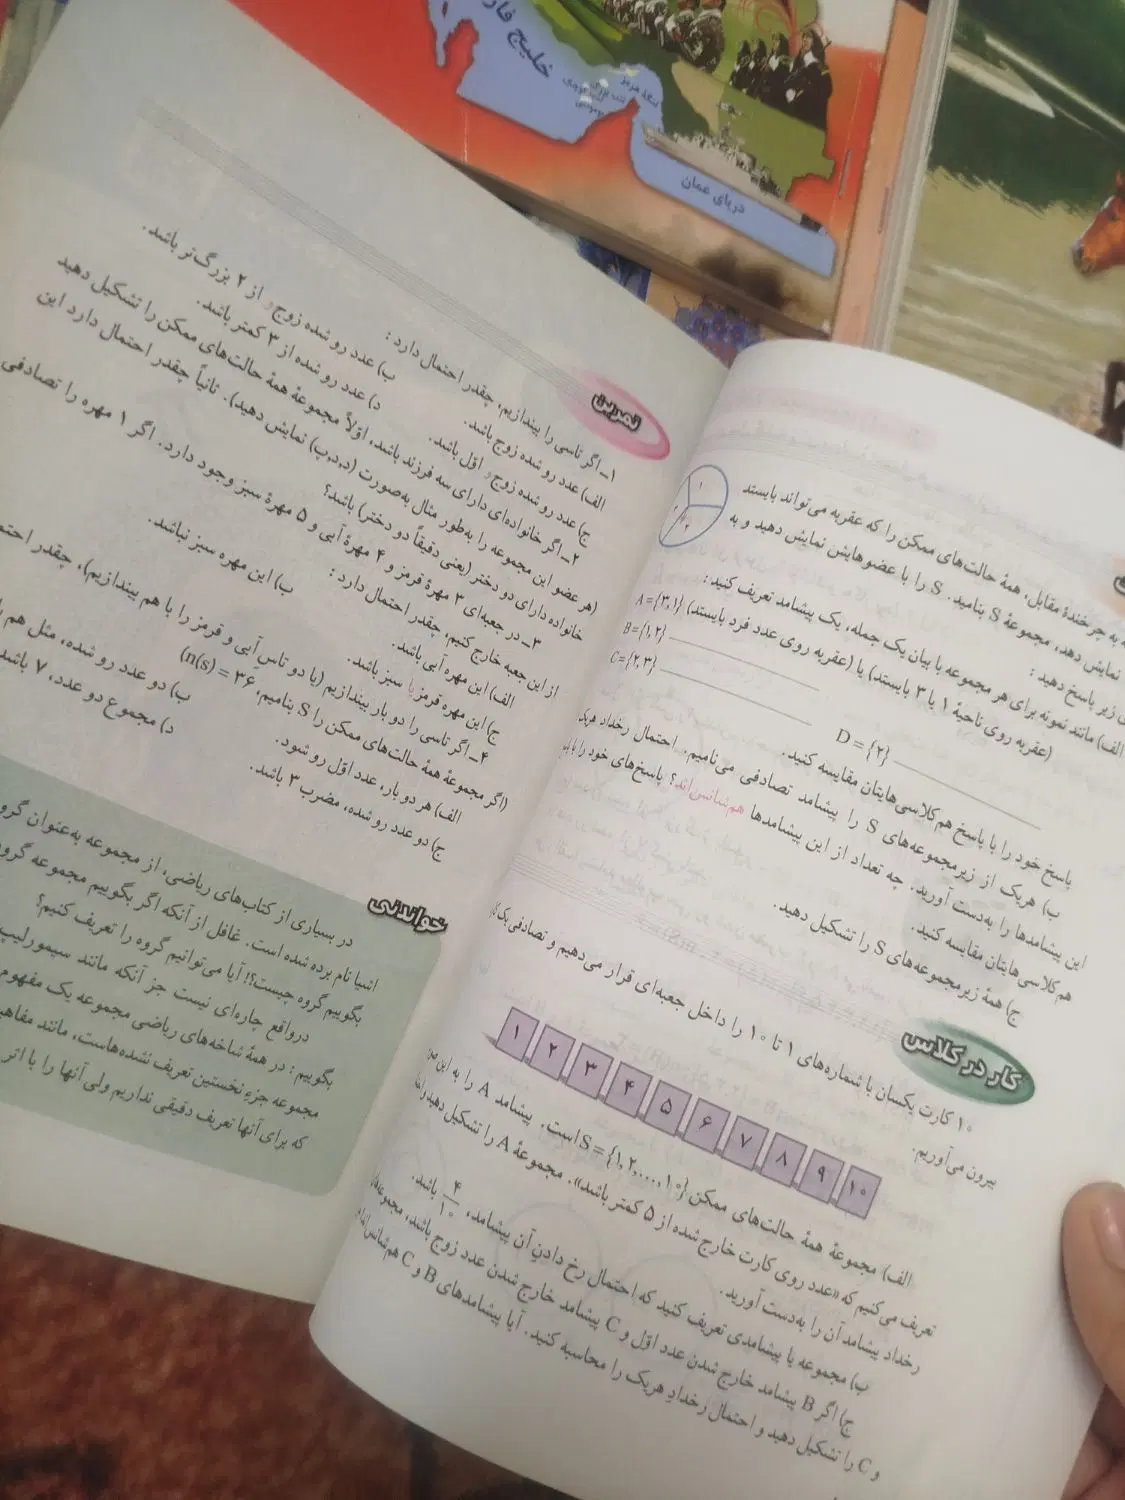 خلیج فارس
تنگه هرمز
دریای عمان
نمایش دهد، مجموعهٔ S بنامید. S را با عضوهایش نمایش دهید و به
زیر پاسخ دهید:
الف) مانند نمونه برای هر مجموعه با بیان یک جمله، یک پیشامد تعریف کنید:
(عقربه روی ناحیهٔ ۱ یا ۳ بایستد) یا (عقربه روی عدد فرد بایستد) A = {۳,۱}
B = {۱,۲}
C = {۲,۳}
D = {۲}
پاسخ خود را با پاسخ هم‌کلاسی‌هایتان مقایسه کنید.
ب) هریک از زیرمجموعه‌های S را پیشامد تصادفی می‌نامیم. احتمال رخداد هریک
این پیشامدها را به‌دست آورید. چه تعداد از این پیشامدها هم‌شانس‌اند؟ پاسخ‌های خود را با
هم‌کلاسی‌هایتان مقایسه کنید.
ج) همهٔ زیرمجموعه‌های S را تشکیل دهید.
کار در کلاس
۱۰ کارت یکسان با شماره‌های ۱ تا ۱۰ را داخل جعبه‌ای قرار می‌دهیم و تصادفی یک
بیرون می‌آوریم.
۱ ۲ ۳ ۴ ۵ ۶ ۷ ۸ ۹ ۱۰
الف) مجموعهٔ همهٔ حالت‌های ممکن S = {۱,۲,...,۱۰} است. پیشامد A را به این
تعریف می‌کنیم که «عدد روی کارت خارج شده از ۵ کمتر باشد». مجموعهٔ A را تشکیل دهید
رخداد پیشامد آن را به‌دست آورید.
ب) مجموعه یا پیشامدی تعریف کنید که احتمال رخ دادن آن پیشامد، ۴/۱۰ باشد.
ج) اگر B پیشامد خارج شدن عدد اوّل و C پیشامد خارج شدن عدد زوج باشد، مجموعه‌های
و C را تشکیل دهید و احتمال رخداد هریک را محاسبه کنید. آیا پیشامدهای B و C هم‌شانس‌اند
تمرین
۱ــ اگر تاسی را بیندازیم، چقدر احتمال دارد:
الف) عدد رو شده زوج باشد. ب) عدد رو شده زوج و از ۲ بزرگ‌تر باشد.
ج) عدد رو شده زوج و اول باشد. د) عدد رو شده از ۳ کمتر باشد.
۲ــ اگر خانواده‌ای دارای سه فرزند باشد، اوّلاً مجموعهٔ همهٔ حالت‌های ممکن را تشکیل دهید
(هر عضو این مجموعه را به‌طور مثال به‌صورت (د,د,ب) نمایش دهید). ثانیاً چقدر احتمال دارد این
خانواده دارای دو دختر (یعنی دقیقاً دو دختر) باشد؟
۳ــ در جعبه‌ای ۳ مهرهٔ قرمز و ۴ مهرهٔ آبی و ۵ مهرهٔ سبز وجود دارد. اگر ۱ مهره را تصادفی
از این جعبه خارج کنیم، چقدر احتمال دارد:
الف) این مهره آبی باشد. ب) این مهره سبز نباشد.
ج) این مهره قرمز یا سبز باشد.
۴ــ اگر تاسی را دو بار بیندازیم (یا دو تاس آبی و قرمز را با هم بیندازیم)، چقدر
(اگر مجموعهٔ همهٔ حالت‌های ممکن را S بنامیم، n(s) = ۳۶)
الف) هر دو بار، عدد اوّل رو شود. ب) دو عدد رو شده، مثل هم
ج) دو عدد رو شده، مضرب ۳ باشد. د) مجموع دو عدد، ۷ باشد
خواندنی
در بسیاری از کتاب‌های ریاضی، از مجموعه به‌عنوان
اشیا نام برده شده است. غافل از آنکه اگر بگوییم مجموعه
بگوییم گروه چیست؟! آیا می‌توانیم گروه را تعریف کنیم؟
درواقع چاره‌ای نیست جز آنکه مانند سیمور
بگوییم: در همهٔ شاخه‌های ریاضی مجموعه یک مفهوم
مجموعه جزءِ نخستین تعریف نشده‌هاست، مانند
که برای آنها تعریف دقیقی نداریم ولی آنها را با اثر